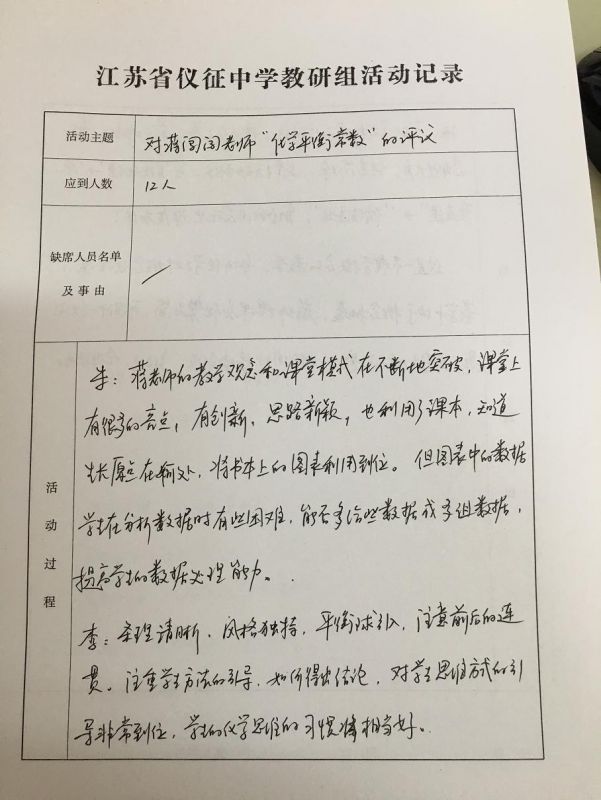 江苏省仪征中学教研组活动记录
活动主题
对蒋闯闯老师“化学平衡常数”的评议
应到人数
12人
缺席人员名单
及事由
活动过程
李：蒋老师的教学观念和课堂模式在不断地突破，课堂上
有很多的亮点，有创新，思路新颖，也利用了课本，知道
生长原点在何处，将书本上的图表利用到位。但图表中的数据
学生在分析数据时有些困难，能否多给些数据或多组数据，
提高学生的数据处理能力。
李：条理清晰，风格独特，平衡球引入，注意前后的连
贯。注重学生方法的引导，如何得出结论，对学生思维方式的引
导非常到位，学生的化学思维的习惯相当好。